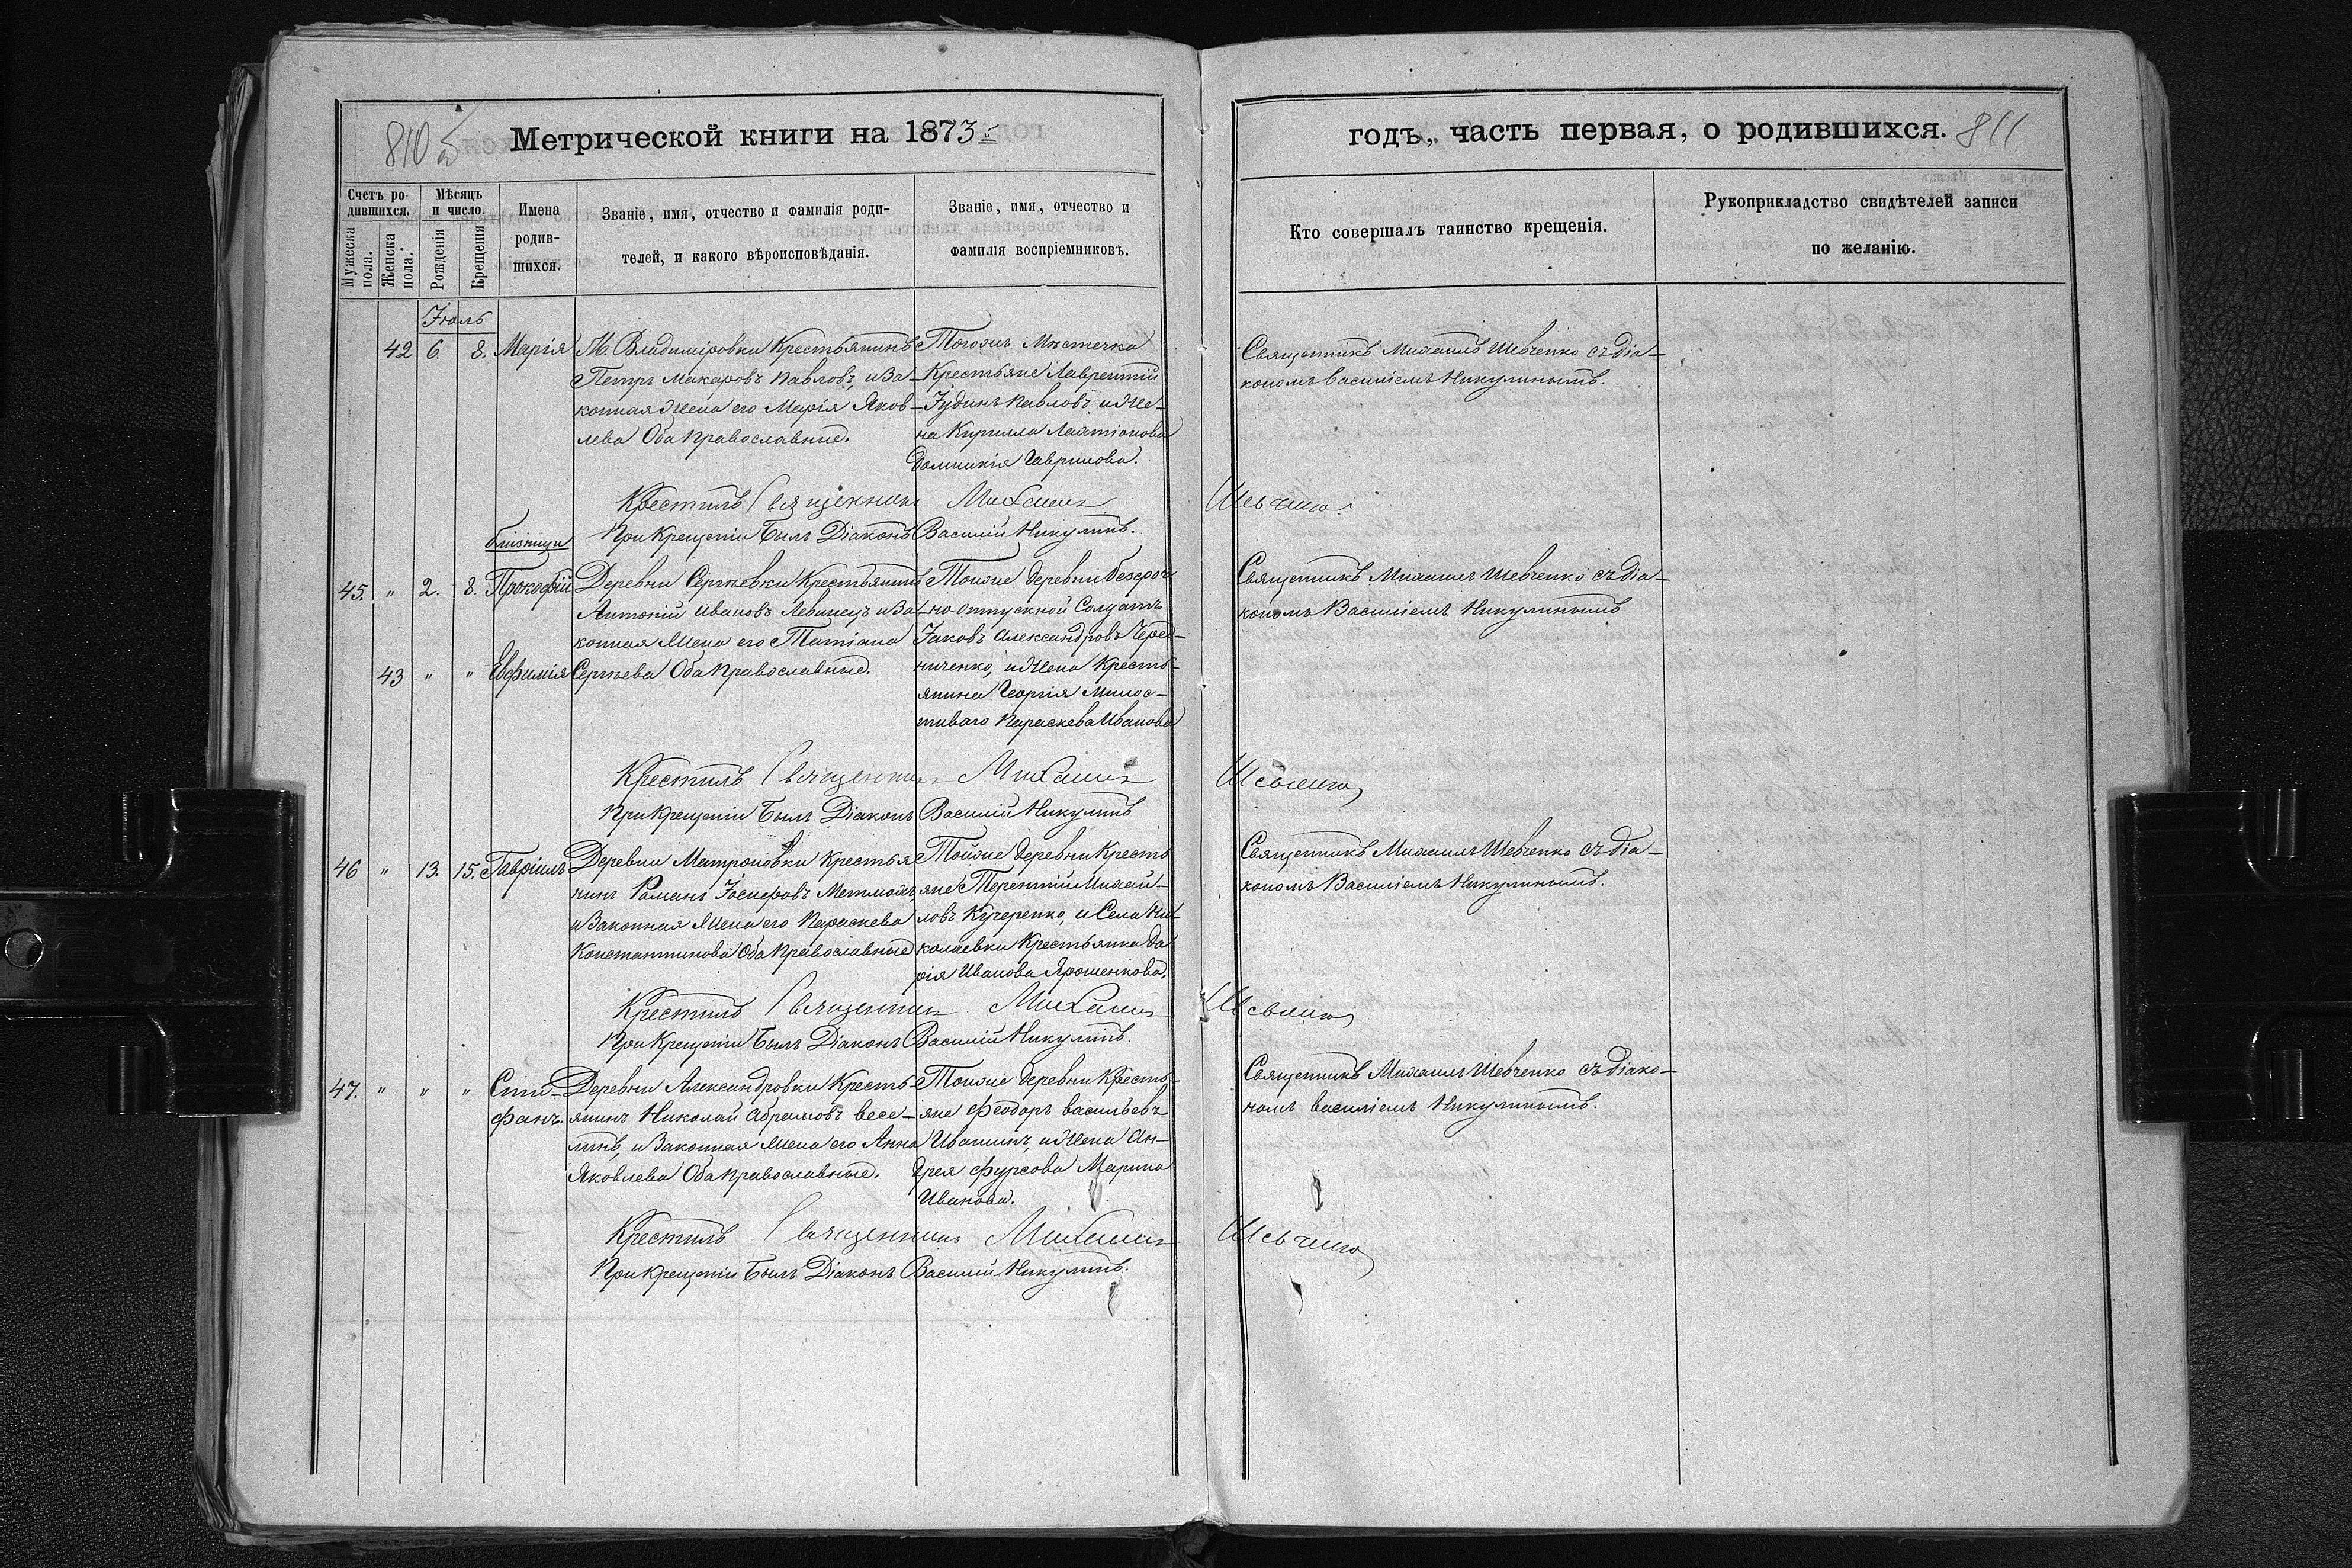 810 б
Метрической книги на 1873
годъ, часть первая, о родившихся.
811
Счетъ родившихся.
Мужеска пола.
Женска пола.
Мѣсяцъ и число.
Рожденія
Крещенія
Имена родившихся.
Званіе, имя, отчество и фамилія родителей, и какого вѣроисповѣданія.
Званіе, имя, отчество и фамилія воспріемниковъ.
Кто совершалъ таинство крещенія.
Рукоприкладство свидѣтелей записи по желанію.
Іюль
42 6. 8. Марія
М. Владиміровки Крестьянинъ
Петръ Макаровъ Павловъ и за-
конная жена его Марія Яков-
лева Оба православные.
Тогожъ Мѣстечка
Крестьяне Лаврентій
Іудинъ Павловъ и же-
на Кирилла
Домникія Гаврилова.
Священникъ Михаилъ Шевченко съ діа-
кономъ Василіемъ Никулинымъ.
Крестилъ Священникъ Михаилъ Шевченко
При крещеніи былъ Діаконъ Василій Никулинъ.
близнецы
45. " 2. 8. Прокофій
43 " " Евфимія
Деревни Сергѣевки Крестьянинъ
Антоній Ивановъ Левинецъ и за-
конная жена его Татіана
Сергѣева Оба православные.
Тойже деревни безсроч-
но-отпускной Солдатъ
Іаковъ Александровъ Черед-
ниченко, и жена Кресть-
янина Георгія Милос-
тиваго Параскева Иванова
Священникъ Михаилъ Шевченко съ діа-
кономъ Василіемъ Никулинымъ
Крестилъ Священникъ Михаилъ Шевченко
При крещеніи былъ Діаконъ Василій Никулинъ
46 " 13. 15. Гавріилъ
Деревни Матроновки Крестья-
нинъ Романъ Іосифовъ
и законная жена его Параскева
Константинова Оба православные
Тойже деревни Кресть
яне Терентій Михай-
ловъ Кучеренко, и Села Ни-
колаевки Крестьянка Да
рія Иванова Ярошенкова.
Священникъ Михаилъ Шевченко съ діа-
кономъ Василіемъ Никулинымъ.
Крестилъ Священникъ Михаилъ Шевченко
При крещеніи былъ Діаконъ Василій Никулинъ.
47. " " " Сти-
фанъ.
Деревни Александровки Кресть-
янинъ Николай Абрамовъ Весе-
линъ, и законная жена его Анна
Яковлева Оба православные.
Тойже деревни Кресть-
яне Феодоръ Васильевъ
Ивашинъ, и жена Ан-
дрея Фурсова Марина
Иванова.
Священникъ Михаилъ Шевченко съ діако-
номъ Василіемъ Никулинымъ.
Крестилъ Священникъ Михаилъ Шевченко
При крещеніи былъ Діаконъ Василій Никулинъ.